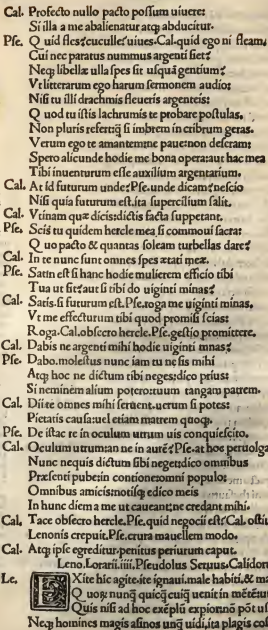 Cal. Profecto nullo pacto possum uiuere:
Si illa a me abalienatur atq; abducitur.
Pse. Quid fles? cucule? uiues. Cal. quid ego ni fleam,
Cui nec paratus nummus argenti siet?
Neq; libellæ ulla spes sit usquā gentium?
Pse. Vt litterarum ego harum sermonem audio:
Nisi tu illi drachmis fleueris argenteis:
Quod tu istis lachrumis te probare postulas,
Non pluris refert q̄ si imbrem in cribrum geras.
Verum ego te amantem ne paue: non deseram:
Spero alicunde hodie me bona opera: aut hac mea
Tibi inuenturum esse auxilium argentarium.
Cal. At id futurum unde? Pse. unde dicam? nescio
Nisi quia futurum est. ita supercilium salit.
Cal. Vtinam quæ dicis: dictis facta suppetant.
Pse. Scis tu quidem hercle mea si commoui sacra:
Quo pacto & quantas soleam turbellas dare?
Cal. In te nunc sunt omnes spes ætati meæ.
Pse. Satin est si hanc hodie mulierem efficio tibi
Tua ut sit? aut si tibi do uiginti minas?
Cal. Satis. si futurum est. Pse. roga me uiginti minas,
Vt me effecturum tibi quod promisi scias:
Roga. Cal. obsecro hercle. Pse. gestio promittere.
Cal. Dabis ne argenti mihi hodie uiginti minas?
Pse. Dabo. molestus nunc iam tu ne sis mihi
Atq; hoc ne dictum tibi neges: dico prius:
Si neminem alium potero: tuum tangam patrem.
Cal. Dii te omnes mihi seruent. uerum si potes:
Pietatis causa: uel etiam matrem quoq;.
Pse. De istac re in oculum utrum uis conquiescito.
Cal. Oculum utrum? an ne in aurē? Pse. at hoc peruolga
Nunc nequis dictum sibi neget: dico omnibus
Præsenti pube: in contione: omni populo:
Omnibus amicis: notisq; edico meis
In hunc diem a me ut caueant: ne credant mihi.
Cal. Tace obsecro hercle. Pse. quid negocii est? Cal. ostiū
Lenonis crepuit. Pse. crura mauellem modo.
Cal. Atq; ipse egreditur. penitus periurum caput.
Leno. Lorarii. iiii. Pseudolus Seruus. Calidor
Le. EXite hic agite. ite ignaui. male habiti. & ma
Quorū nunq̄ quicq̄ cuiq̄ uenit in mētē ut
Quis nisi ad hoc exēplū experior: nō pōt us
Neq; homines magis asinos unq̄ uidi. ita plagis cost